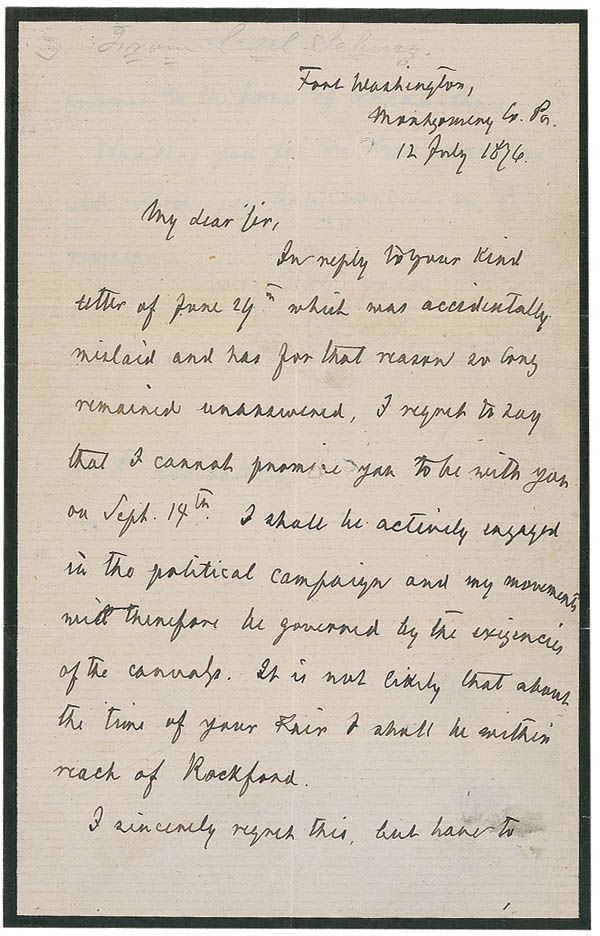 From Carl Schurz.
Fort Washington,
Montgomery Co. Pa.
12 July 1876.
My dear Sir,
In reply to your kind
letter of June 29th which was accidentally
mislaid and has for that reason so long
remained unanswered, I regret to say
that I cannot promise you to be with you
on Sept. 14th. I shall be actively engaged
in the political campaign and my movements
will therefore be governed by the exigencies
of the canvass. It is not likely that about
the time of your Fair I shall be within
reach of Rockford.
I sincerely regret this, but have to